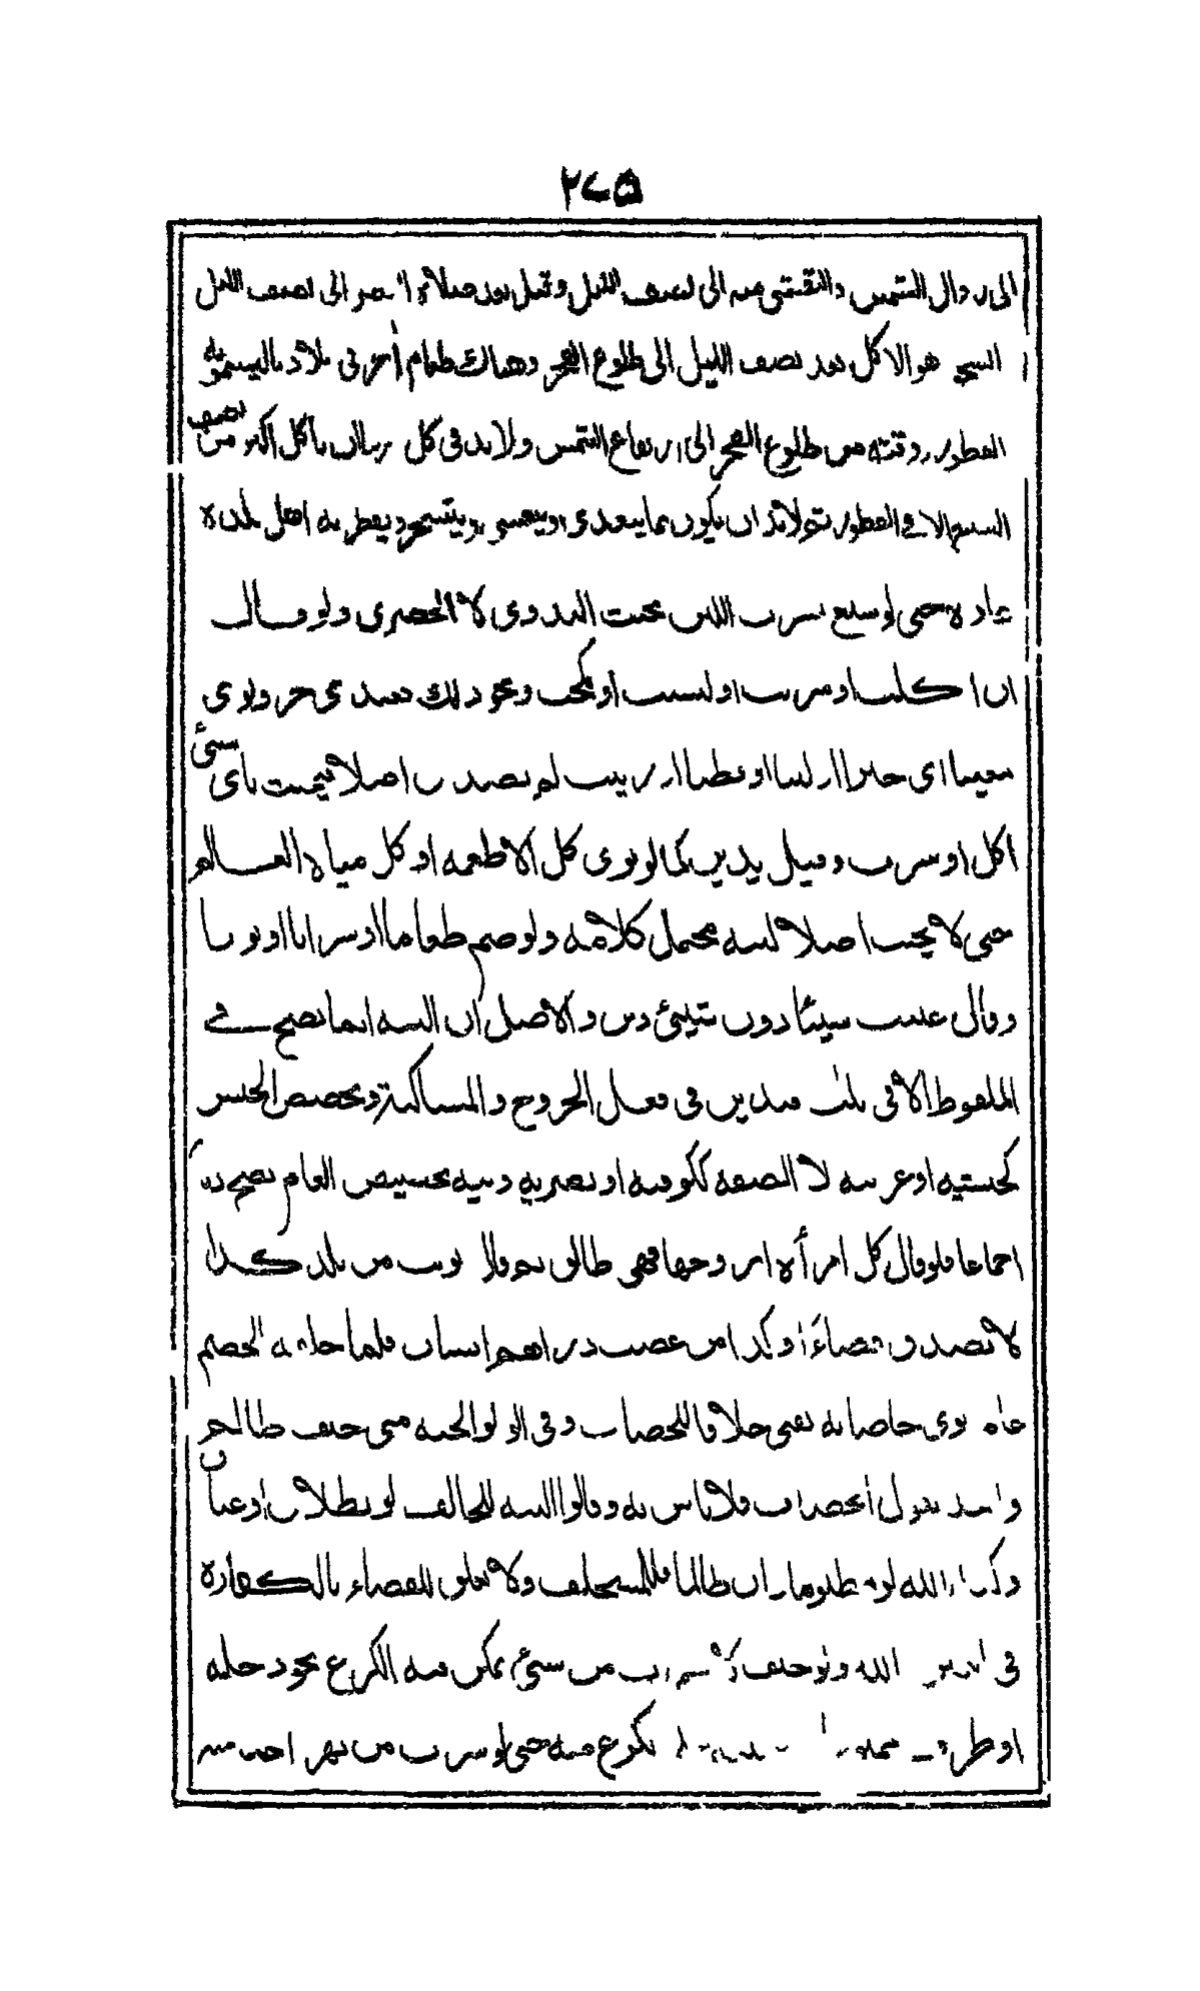 ٢٧٥
الى زوال الشمس والتعشي منه الى نصف الليل وقيل بعد صلاة العصر الى نصف الليل
السحور هو الاكل بعد نصف الليل الى طلوع الفجر وهناك طعام اخر في بلادنا ليسمونه
الفطور ووقته من طلوع الفجر الى ارتفاع الشمس ولا بد في كل ان ياكل اكثر من نصف
الشبع الا في الفطور ثم لا بد ان يكون مما يتغدى ويتعشى ويتسحر ويفطر به اهل بلده
عادة حتى لو شبع بشرب اللبن يحنث البدوي لا الحضري ولو قال
ان اكلت او شربت او لبست او نكحت ونحو ذلك فعبدي حر ونوى
معينا اي خبزا او لبنا او قطنا او زينب لم يصدق اصلا فيحنث باي شئ
اكل او شرب وقيل يدين كما لو نوى كل الاطعمة او كل مياه العالم
حتى لا يحنث اصلا لنية محتمل كلامه ولو ضم طعاما او شرابا او ثوبا
وقال عنيت شيئا دون شئ دين والاصل ان النية انما تصح في
الملفوظ الا في ثلث فيدين في فعل الخروج والمساكنة وتخصيص الجنس
كحبشية او عربية لا الصفة ككوفية او بصرية ونية تخصيص العام تصح ديانة
اجماعا فلو قال كل امرأة اتزوجها فهي طالق ثم قال نويت من بلد كذا
لا يصدق قضاء وكذا من غصب دراهم انسان فلما حلفه الخصم
عاما نوى خاصا به يفتى خلافا للخصاف وفي الولوالجية متى حلف ظالم
واخذ بقول الخصاف فلا باس به وقالوا النية للحالف لو بطلاق او عتاق
وكذا بالله لو مظلوما وان ظالما فللمستحلف ولا تعلق للقضاء بالكفارة
في اليمين بالله ولو حلف لا يشرب من شئ يمكن فيه الكرع نحو دجلة
او نكرع منه حتى لو شرب من نهر اخذ منه